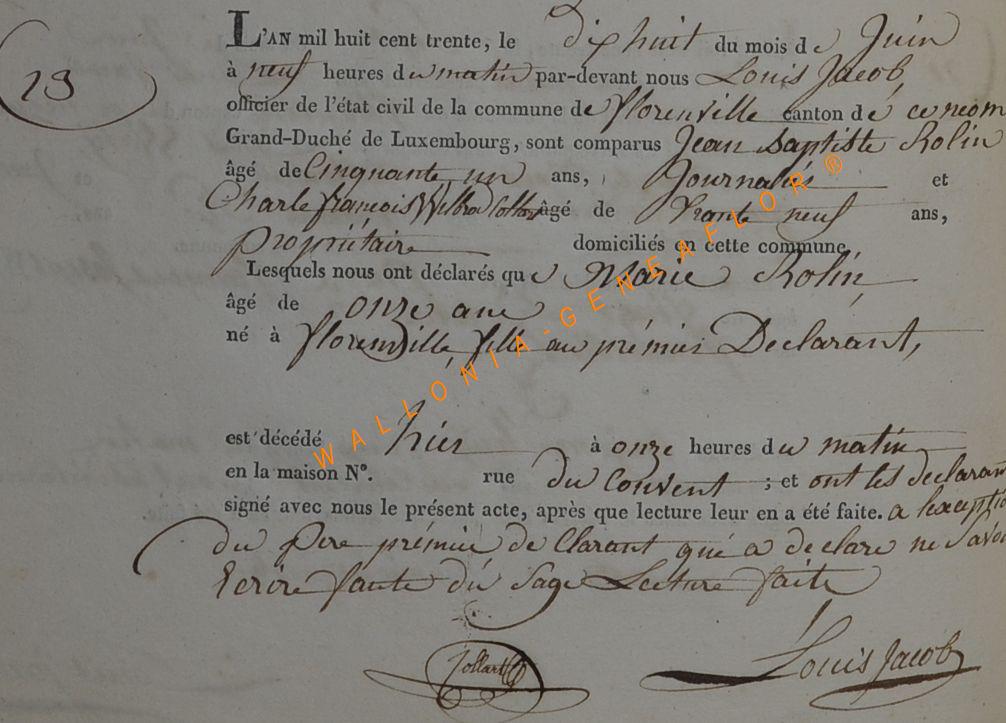 L'AN mil huit cent trente, le dix huit du mois de Juin
19
à neuf heures du matin par-devant nous Louis Jacob,
officier de l'état civil de la commune de florenville canton dé ce nom
Grand-Duché de Luxembourg, sont comparus Jean Baptiste Rolin
âgé de Cinquante un ans, Journalié et
Charle francois âgé de trante neuf ans,
propriétaire domiciliés en cette commune,
Lesquels nous ont déclarés que Marie Rolin,
âgé de onze ans
né à florenville, fille au prémier Declarant,
est décédé hier à onze heures du matin
en la maison N°. rue du Couvent ; et ont les declarant
signé avec nous le présent acte, après que lecture leur en a été faite. a l'exception
du Pere prémier de Clarant qué a declare ne savoi
Ecrire faute du sage Lecture faite
Collart Louis Jacob
WALLONIA-GENEAFLOR®